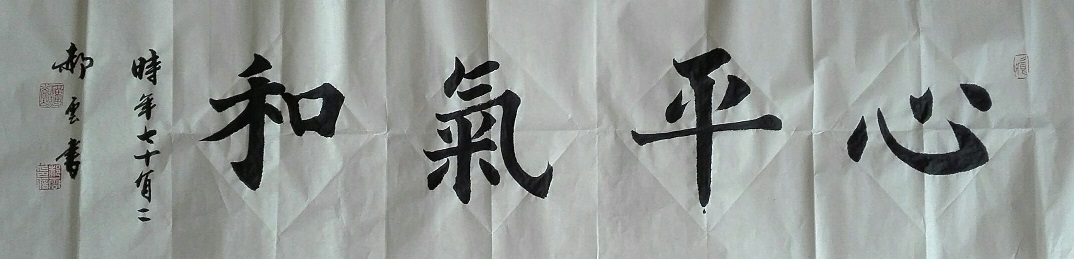 心平氣和
時年七十有二
郝雲書